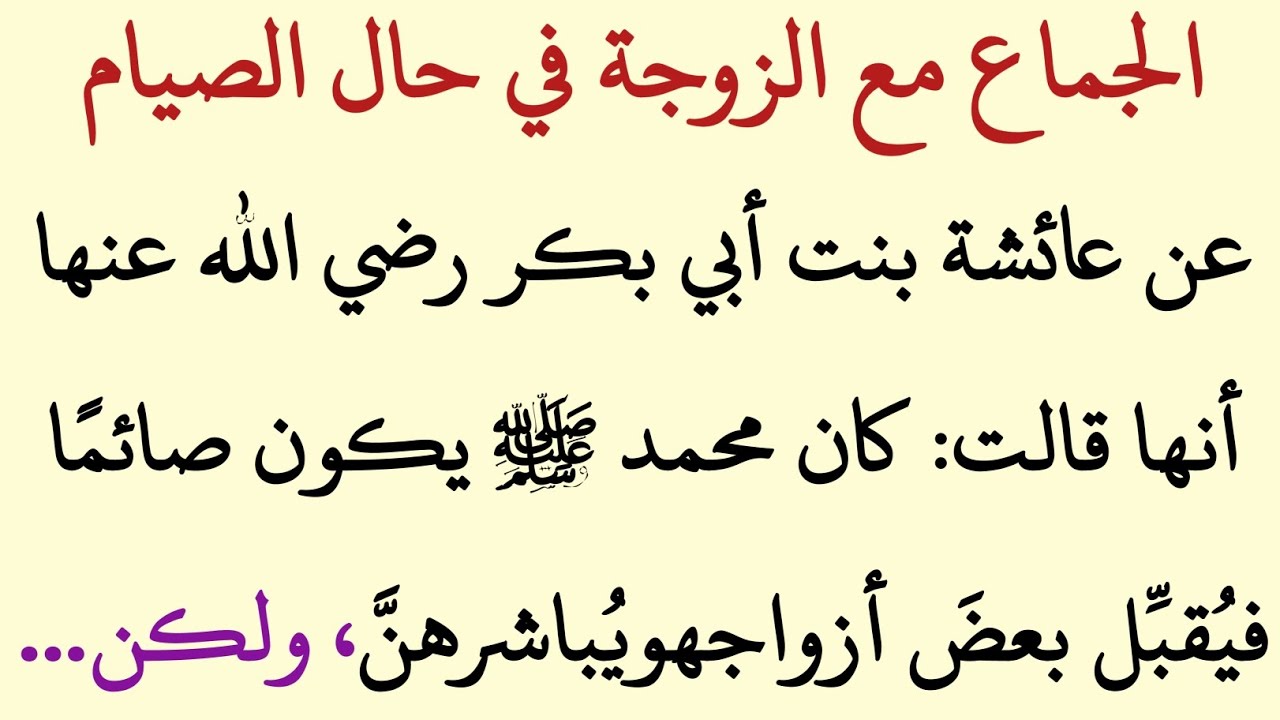 الجماع مع الزوجة في حال الصيام
عن عائشة بنت أبي بكر رضي الله عنها
أنها قالت: كان محمد ﷺ يكون صائمًا
فيُقبِّل بعضَ أزواجهويُباشرهنَّ، ولكن...